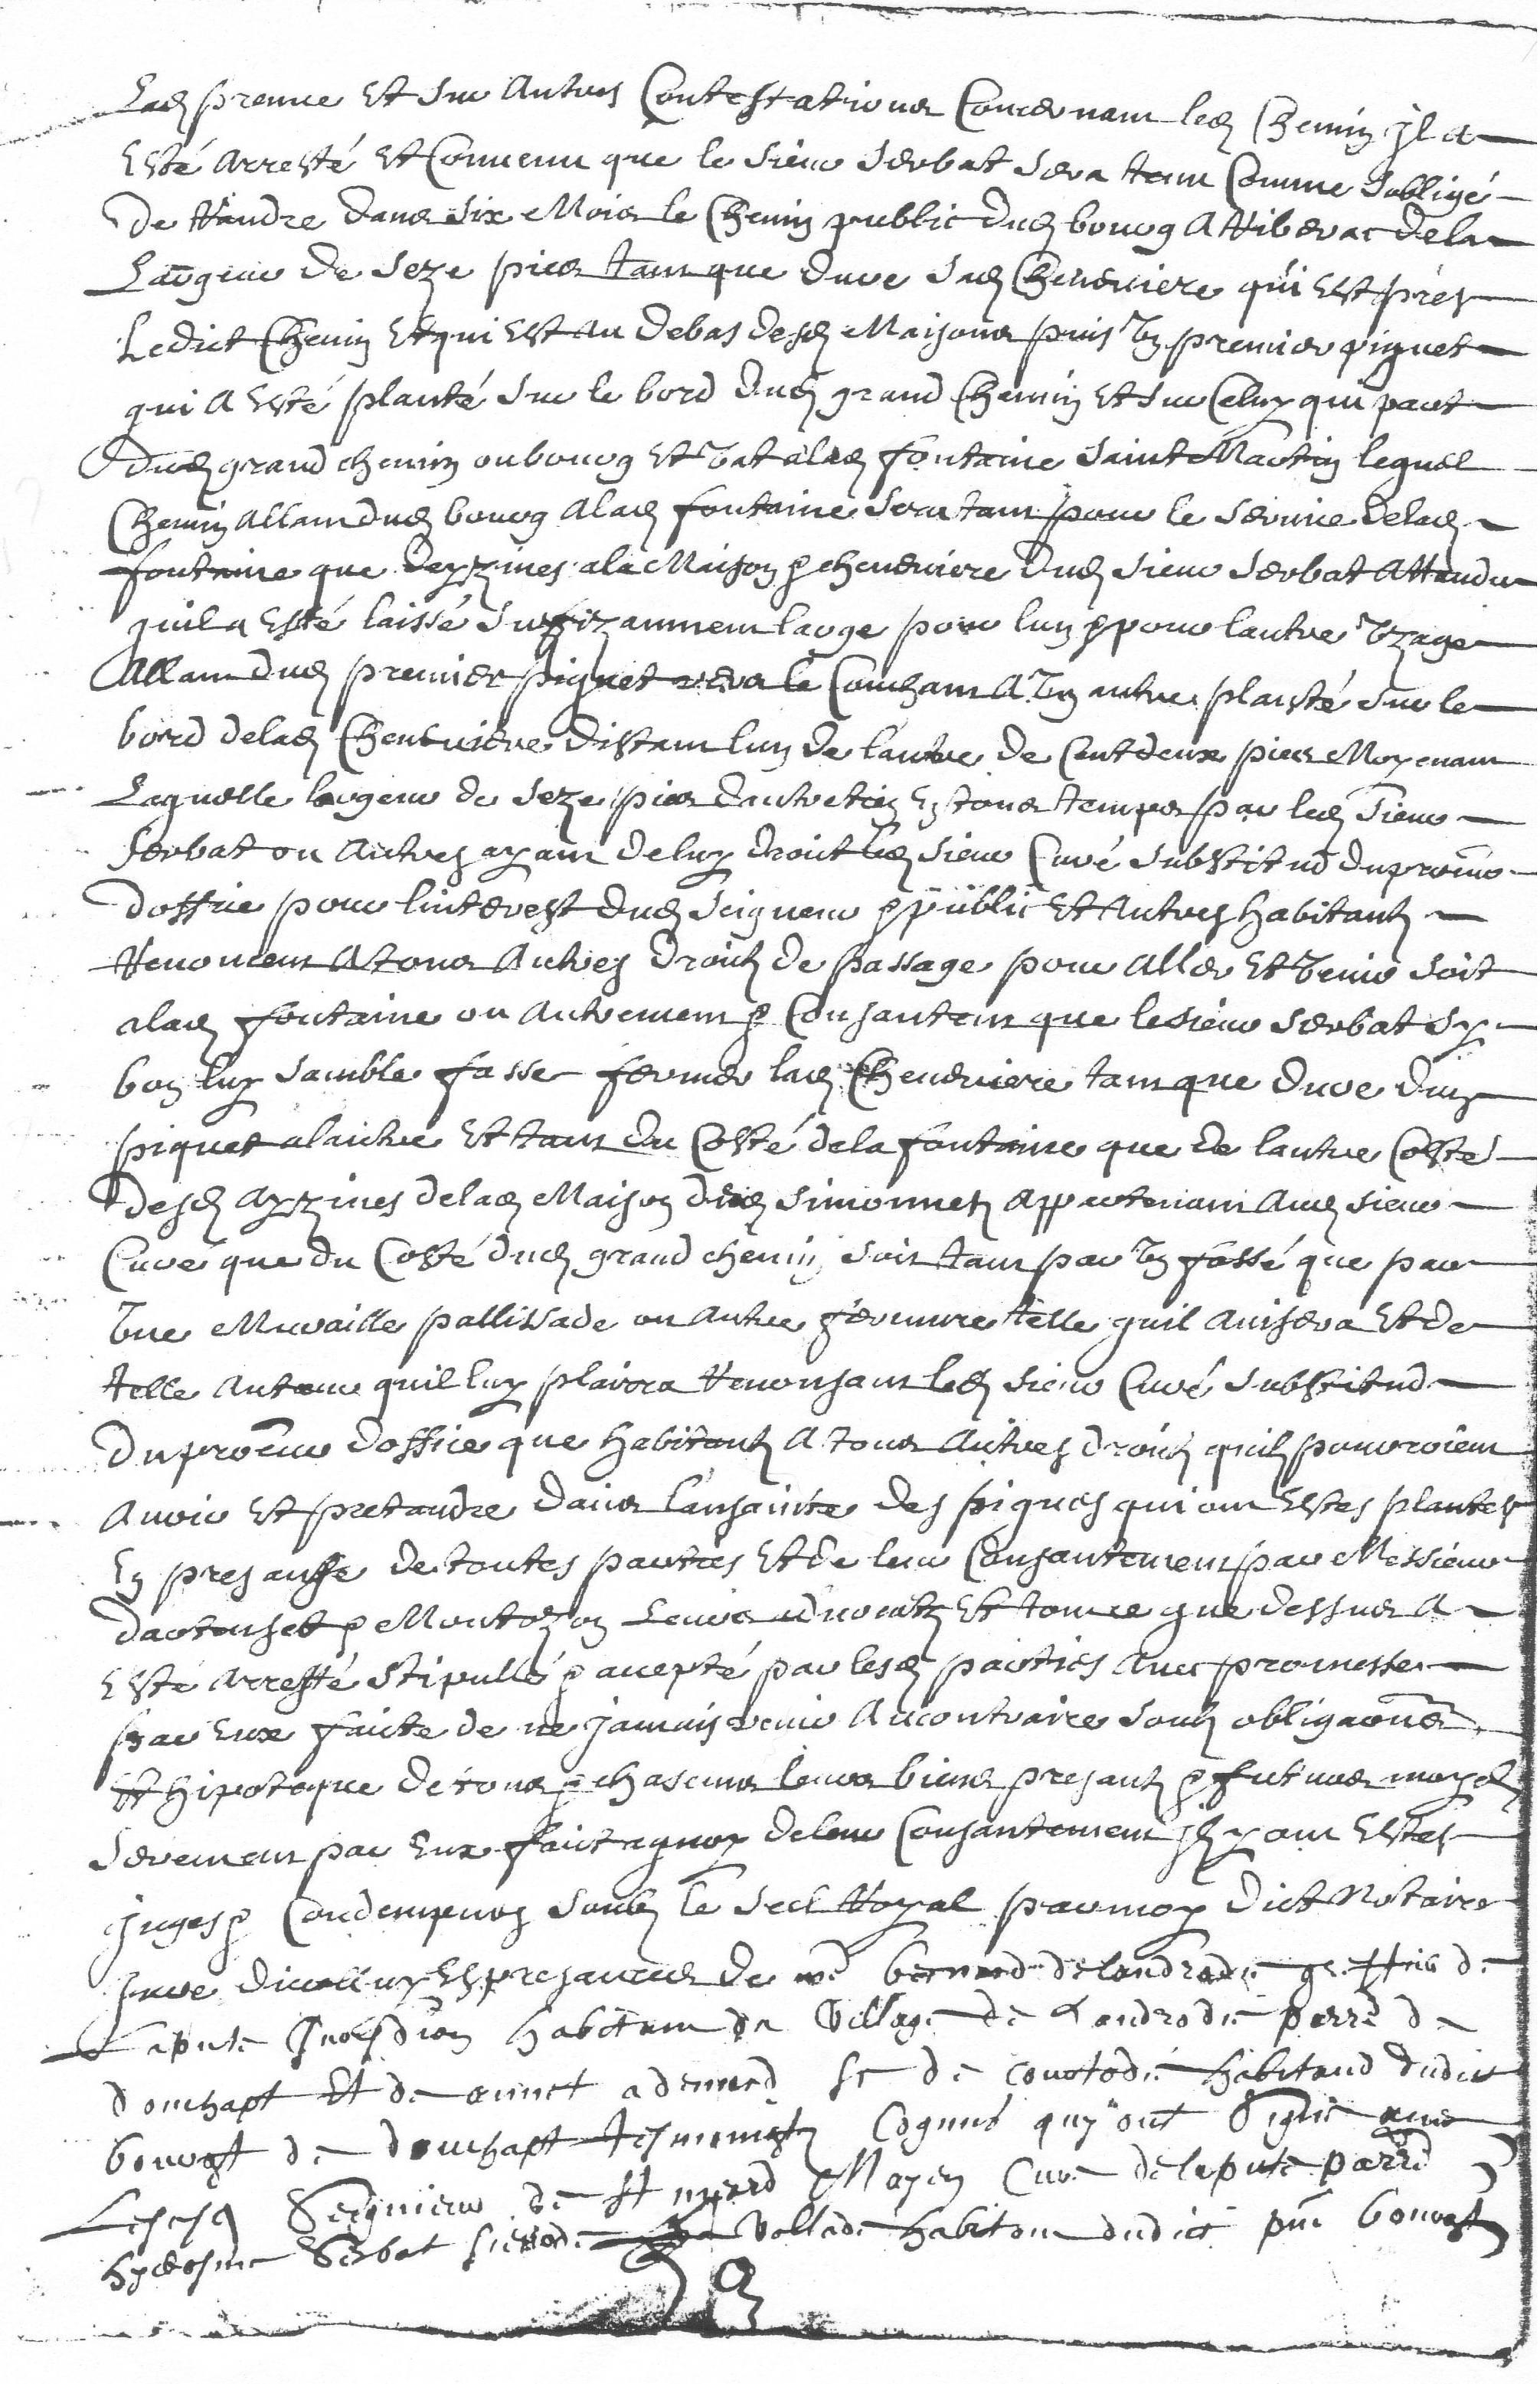 Lad preuve et sur autres Contestations Concernant led Chemin jl a
Esté arresté et Convenu que le sieur Serbat sera tenu Comme soblige
de randre dans six Mois le Chemin public dud bourg a Riberac de la
Largeur de seze pies tant que dure sad Cheneviere qui Est pres
Ledict Chemin Et qui Est au debas desd Maisons puis un premier piquet
qui a Esté planté sur le bord dud grand Chemin Et sur Celuy qui part
dud grand chemin ou bourg et vat a lad fontaine saint Martin lequel
Chemin allant dud bourg a lad fontaine sera tant pour le service de lad
fontaine que dayzines a la Maison & cheneviere dud sieur Serbat attandu
quil a Esté laissé suffizamment large pour lun & pour lautre uzage
Allant dud premier piquet vers le Couchant a un autre planté sur le
bord de lad Cheneviere distant lun de lautre de Cent deux pies Moyenant
Laquelle largeur de seze pies dautretien En tous temps par led sieur
Serbat ou autres ayant de luy droit led sieur Curé substitud du procur
doffice pour linterest dud seigneur & public Et autres habitants
Renoncent a tous autres droits de passage pour aller Et venir soit
a lad fontaine ou autrement & Consantent que le sieur Serbat sy
bon luy samble fasse fermer lad Cheneviere tant que dure dun
piquet a lautre Et tant du Costé de la fontaine que de lautre Costé
desd ayzines de lad Maison dud Simonnet appartenant aud sieur
Curé que du Costé dud grand chemin soit tant par un fossé que par
une Muraille pallissade ou autre fermure telle quil avisera Et de
telle auteur quil luy plairra Renonsant led sieur Curé substitud
du procur doffice que habitants a tous autres droits quils pourroient
avoir Et pretandre dans lansainte des piques qui ont Estes plantes
En presansse de toutes parties Et de leur Consantement par Messieurs
dartenset & Montozon Leurs advocatz Et tout ce que dessus a
Esté arresté stipullé & accepté par lesd parties avec promesse
par Eux faicte de ne jamais venir au contraire soubz obligaons
Et hipoteque de tous & chascuns leurs biens presantz & futurs moyen
serement par Eux faict a quoy de leur Consantement jlz y ont Estes
juges & Condempnes soubz le seel Royal par moy dict Notaire
jure dicelluy Es presances de bernard de landrodie de
habitant du Village de Landrodie parre de
douchapt Et de sr de habitand dudict
bourgt de douchapt tesmoingtz Cognus quy ont signe avec
Seigneur de Curé de parre
Serbat habitant dudict pnt bourgt